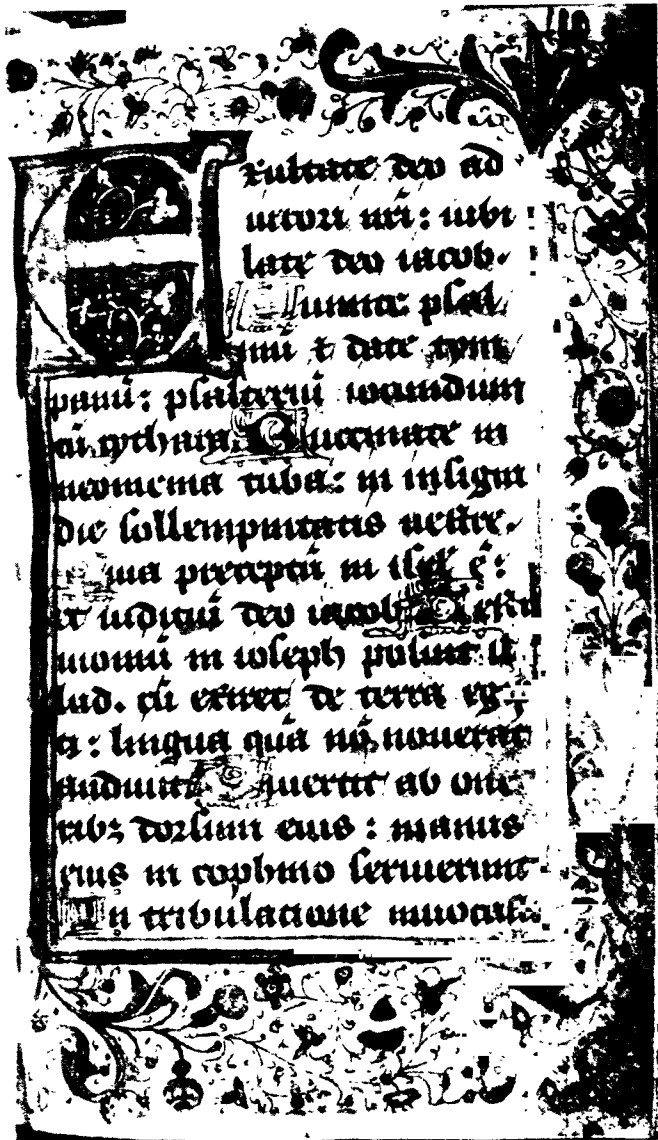 Exultate deo ad
iutori nr̄i : iubi
late deo iacob.
Sumite psal
mū ⁊ date tym
panū : psalteriū iocundum
cū cythara. Buccinate in
neomenia tuba : in insigni
die sollempnitatis uestre.
Quia preceptū in isrl̄ ē :
et iudiciū deo iacob. Testi
moniū in ioseph posuit il
lud. cū exiret de terra egi
ti : lingua quā nō nouerat
audiuit. Diuertit ab one
ribꝫ dorsum eius : manus
eius in cophino seruierunt
In tribulatione inuocasti